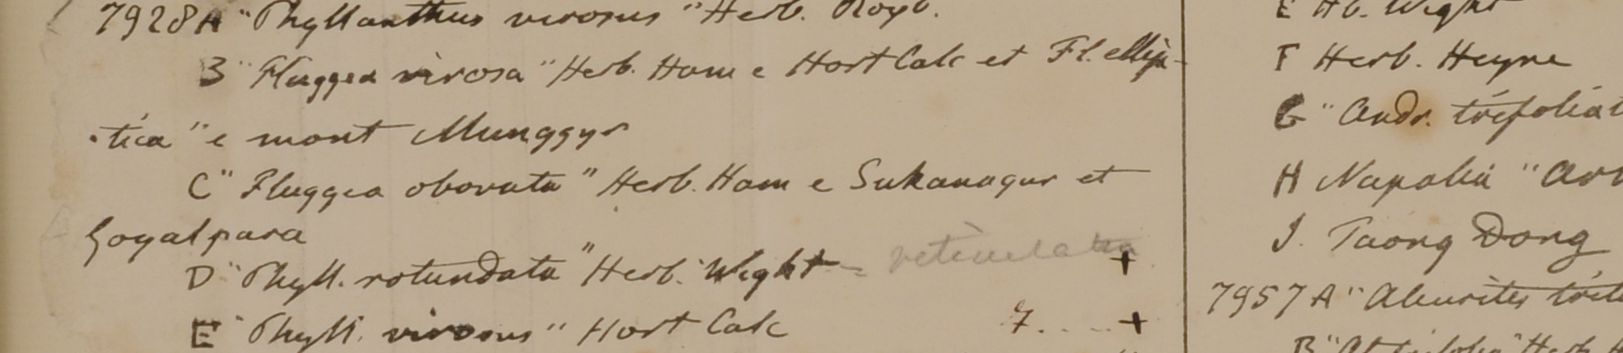 7928 A "Phyllanthus virosus" Herb. Roxb.
B "Fluggea virosa" Herb. Ham e Hort Calc et Fl. ellip-
-tica" e mont Munggyr
C "Fluggea obovata" Herb. Ham e Sukanagur et
Goyalpara
D "Phyll. rotundata" Herb. Wight = reticulata +
E "Phyll. virosus" Hort Calc 7.... +
E Hb. Wight
F Herb. Heyne
G "Andr. trifoliat
H Napalia
J. Taong Dong
7957 A "Aleurites
B Herb.